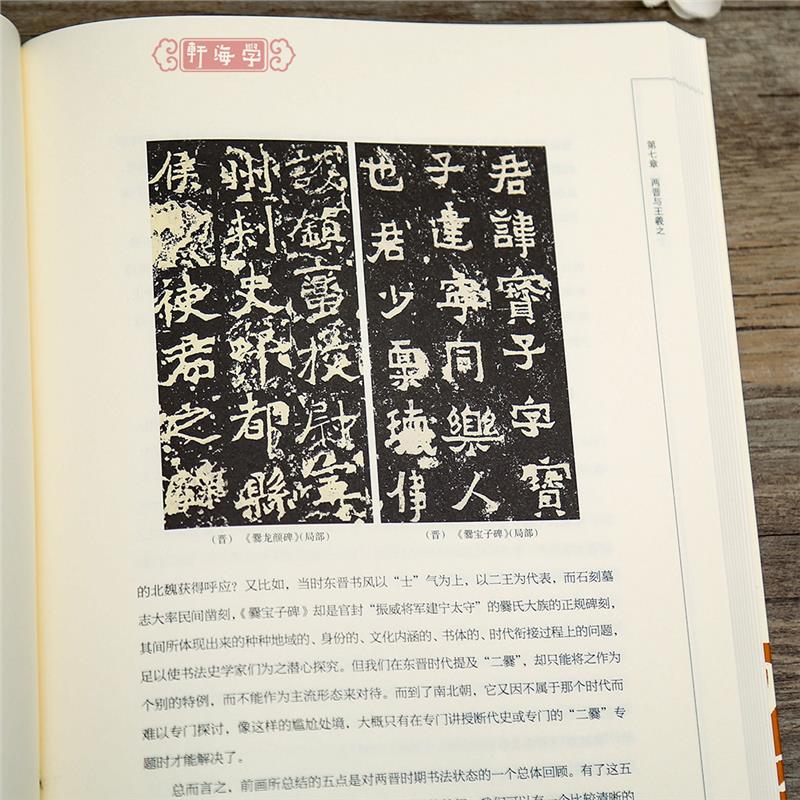 學海軒
第七章 两晋与王羲之
君諱寶子字寶
子建寧同樂人
也君少稟瑰偉
護鎮蠻挍尉寧
州刺史邛都縣
侯爨使君之碑
（晋）《爨龙颜碑》(局部)
（晋）《爨宝子碑》(局部)
的北魏获得呼应？又比如，当时东晋书风以“士”气为上，以二王为代表，而石刻墓
志大率民间凿刻，《爨宝子碑》却是官封“振威将军建宁太守”的爨氏大族的正规碑刻，
其间所体现出来的种种地域的、身份的、文化内涵的、书体的、时代衔接过程上的问题，
足以使书法史学家们为之潜心探究。但我们在东晋时代提及“二爨”，却只能将之作为
个别的特例，而不能作为主流形态来对待。而到了南北朝，它又因不属于那个时代而
难以专门探讨，像这样的尴尬处境，大概只有在专门讲授断代史或专门的“二爨”专
题时才能解决了。
总而言之，前画所总结的五点是对两晋时期书法状态的一个总体回顾。有了这五
我们可以有一个比较清晰的